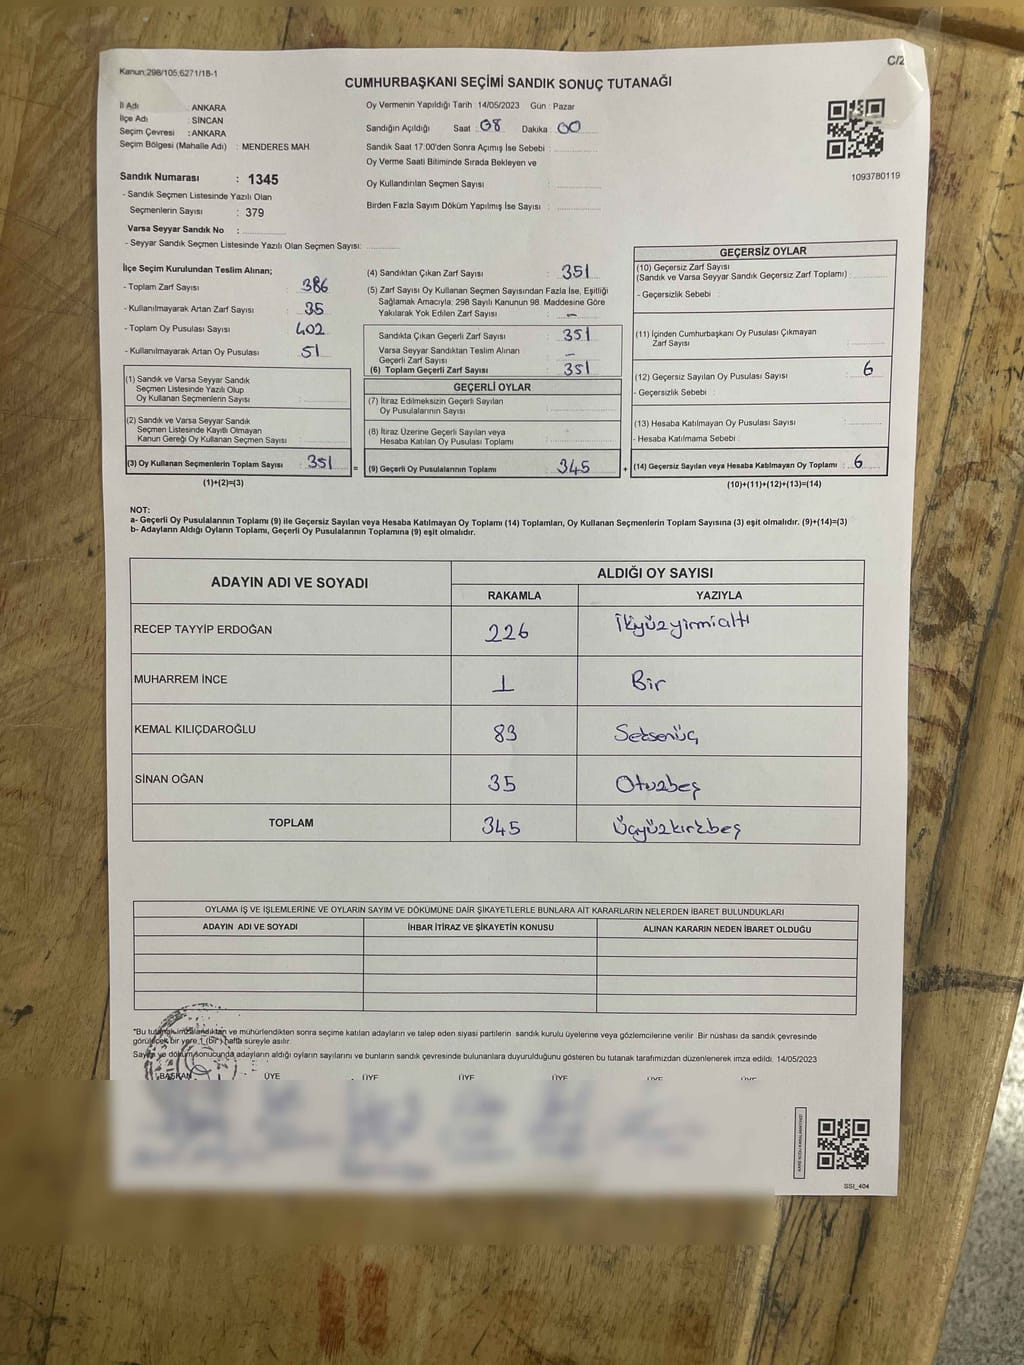 Kanun:298/105,6271/18-1
C/2
CUMHURBAŞKANI SEÇİMİ SANDIK SONUÇ TUTANAĞI
İl Adı : ANKARA
İlçe Adı : SİNCAN
Seçim Çevresi : ANKARA
Seçim Bölgesi (Mahalle Adı) : MENDERES MAH.
Sandık Numarası : 1345
- Sandık Seçmen Listesinde Yazılı Olan
Seçmenlerin Sayısı : 379
Varsa Seyyar Sandık No :
- Seyyar Sandık Seçmen Listesinde Yazılı Olan Seçmen Sayısı:
Oy Vermenin Yapıldığı Tarih : 14/05/2023 Gün : Pazar
Sandığın Açıldığı Saat : 08 Dakika : 00
Sandık Saat 17:00'den Sonra Açımış İse Sebebi :
Oy Verme Saati Bitiminde Sırada Bekleyen ve
Oy Kullandırılan Seçmen Sayısı :
Birden Fazla Sayım Döküm Yapılmış İse Sayısı :
1093780119
İlçe Seçim Kurulundan Teslim Alınan;
- Toplam Zarf Sayısı : 386
- Kullanılmayarak Artan Zarf Sayısı : 35
- Toplam Oy Pusulası Sayısı : 402
- Kullanılmayarak Artan Oy Pusulası : 51
(1) Sandık ve Varsa Seyyar Sandık
Seçmen Listesinde Yazılı Olup
Oy Kullanan Seçmenlerin Sayısı :
(2) Sandık ve Varsa Seyyar Sandık
Seçmen Listesinde Kayıtlı Olmayan
Kanun Gereği Oy Kullanan Seçmen Sayısı :
(3) Oy Kullanan Seçmenlerin Toplam Sayısı : 351
(1)+(2)=(3)
(4) Sandıktan Çıkan Zarf Sayısı : 351
(5) Zarf Sayısı Oy Kullanan Seçmen Sayısından Fazla İse, Eşitliği
Sağlamak Amacıyla; 298 Sayılı Kanunun 98. Maddesine Göre
Yakılarak Yok Edilen Zarf Sayısı : –
Sandıkta Çıkan Geçerli Zarf Sayısı : 351
Varsa Seyyar Sandıktan Teslim Alınan
Geçerli Zarf Sayısı : –
(6) Toplam Geçerli Zarf Sayısı : 351
GEÇERLİ OYLAR
(7) İtiraz Edilmeksizin Geçerli Sayılan
Oy Pusulalarının Sayısı :
(8) İtiraz Üzerine Geçerli Sayılan veya
Hesaba Katılan Oy Pusulası Toplamı :
= (9) Geçerli Oy Pusulalarının Toplamı : 345
GEÇERSİZ OYLAR
(10) Geçersiz Zarf Sayısı
(Sandık ve Varsa Seyyar Sandık Geçersiz Zarf Toplamı) :
- Geçersizlik Sebebi :
(11) İçinden Cumhurbaşkanı Oy Pusulası Çıkmayan
Zarf Sayısı :
(12) Geçersiz Sayılan Oy Pusulası Sayısı : 6
- Geçersizlik Sebebi :
(13) Hesaba Katılmayan Oy Pusulası Sayısı :
- Hesaba Katılmama Sebebi :
+ (14) Geçersiz Sayılan veya Hesaba Katılmayan Oy Toplamı : 6
(10)+(11)+(12)+(13)=(14)
NOT:
a- Geçerli Oy Pusulalarının Toplamı (9) ile Geçersiz Sayılan veya Hesaba Katılmayan Oy Toplamı (14) Toplamları, Oy Kullanan Seçmenlerin Toplam Sayısına (3) eşit olmalıdır. (9)+(14)=(3)
b- Adayların Aldığı Oyların Toplamı, Geçerli Oy Pusulalarının Toplamına (9) eşit olmalıdır.
ADAYIN ADI VE SOYADI ALDIĞI OY SAYISI
RAKAMLA YAZIYLA
RECEP TAYYİP ERDOĞAN 226 İkiyüzyirmialtı
MUHARREM İNCE 1 Bir
KEMAL KILIÇDAROĞLU 83 Seksenüç
SİNAN OĞAN 35 Otuzbeş
TOPLAM 345 Üçyüzkırkbeş
OYLAMA İŞ VE İŞLEMLERİNE VE OYLARIN SAYIM VE DÖKÜMÜNE DAİR ŞİKAYETLERLE BUNLARA AİT KARARLARIN NELERDEN İBARET BULUNDUKLARI
ADAYIN ADI VE SOYADI İHBAR İTİRAZ VE ŞİKAYETİN KONUSU ALINAN KARARIN NEDEN İBARET OLDUĞU
"Bu tutanak imzalandıktan ve mühürlendikten sonra seçime katılan adayların ve talep eden siyasi partilerin sandık kurulu üyelerine veya gözlemcilerine verilir. Bir nüshası da sandık çevresinde
görülecek bir yere 1 (bir) hafta süreyle asılır.
Sayım ve döküm sonucunda adayların aldığı oyların sayılarını ve bunların sandık çevresinde bulunanlara duyurulduğunu gösteren bu tutanak tarafımızdan düzenlenerek imza edildi. 14/05/2023
BAŞKAN ÜYE ÜYE ÜYE ÜYE ÜYE ÜYE
SSI_404